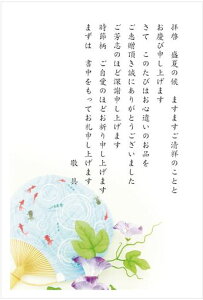 拝啓　盛夏の候　ますますご清祥のことと
お慶び申し上げます
さて　このたびはお心遣いのお品を
ご恵贈頂き誠にありがとうございました
ご芳志のほど深謝申し上げます
時節柄　ご自愛のほどお祈り申し上げます
まずは　書中をもってお礼申し上げます
敬具